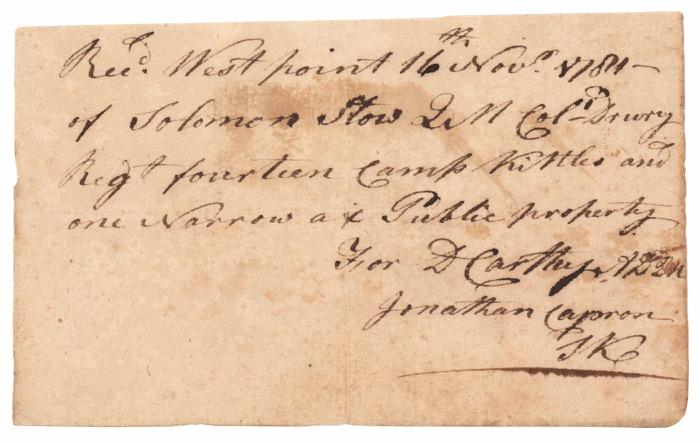 Rec'd. West point 16th Novr. 1781-
of Solomon Stow Q M Colo. Drury
Regt fourteen Camp Kittles and
one Narrow ax Public property
For D Carthy A D Q M
Jonathan Capron
S K